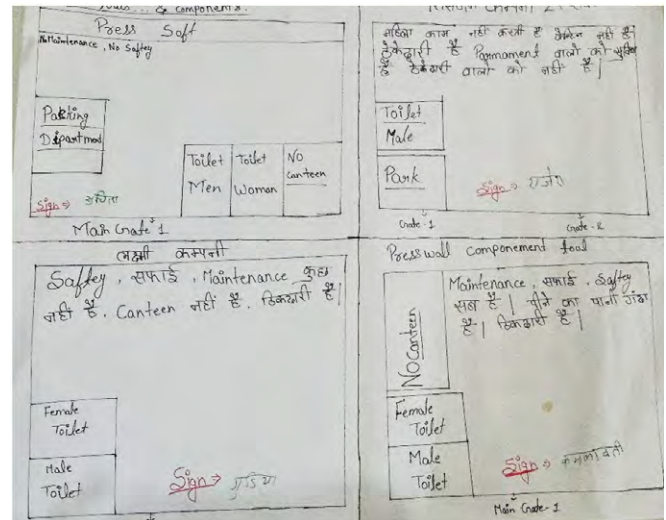 & Components.
Press Soft
No Maintenance, No Saftey
Parking
Dipartmend
Toilet
Men
Toilet
Woman
No
Canteen
Sign →
Main Grate 1
महिला काम नहीं करती है कैन्टिन नहीं है।
ठेकेदारी है Parmament वालो को सुविधा
है ठेकेदारी वालो को नहीं है।
Toilet
Male
Park
Sign →
Grate-1
Grate-2
लक्ष्मी कम्पनी
Saftey, सफाई, Maintenance कुछ
नहीं है. Canteen नहीं है. ठिकदारी है|
Female
Toilet
Male
Toilet
Sign → गुडिया
Presswall componement tool
Maintenance, सफाई, Saftey
सब है| पीने का पानी गंदा
है| ठिकदारी है|
No Canteen
Female
Toilet
Male
Toilet
Sign → कमलावती
Main Grate-1